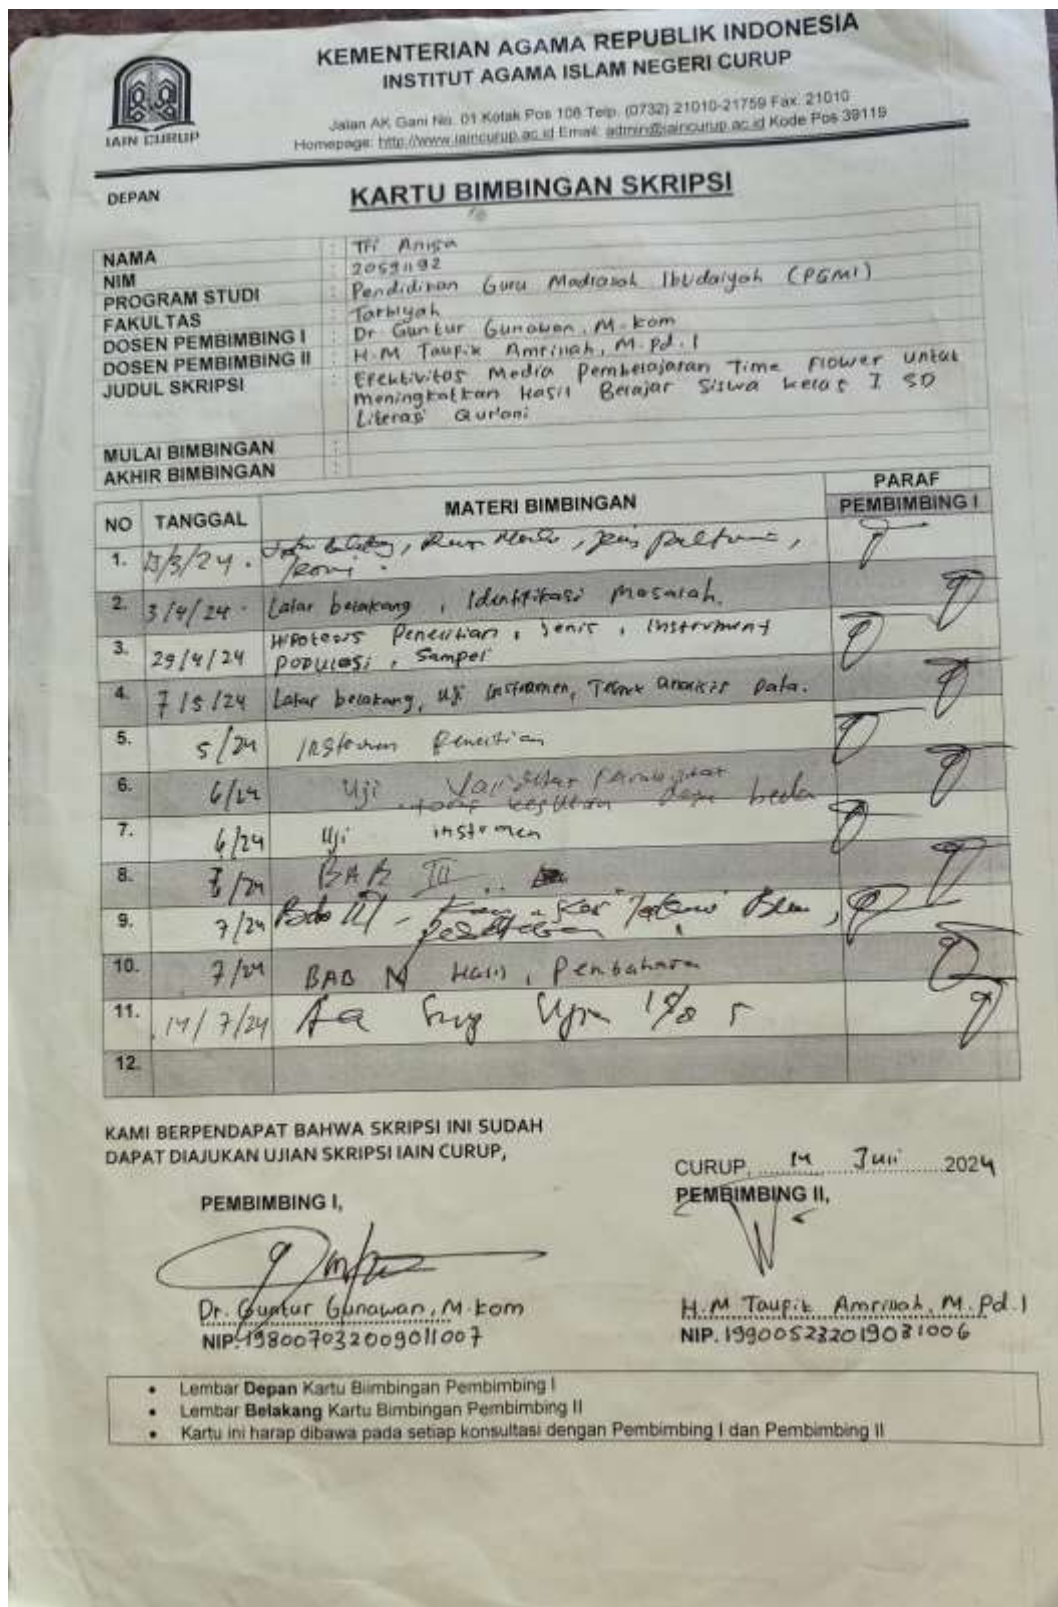 KEMENTERIAN AGAMA REPUBLIK INDONESIA
INSTITUT AGAMA ISLAM NEGERI CURUP
Jalan AK Gani No. 01 Kotak Pos 108 Telp. (0732) 21010-21759 Fax. 21010
Homepage: http://www.iaincurup.ac.id Email: admin@iaincurup.ac.id Kode Pos 39119
IAIN CURUP
DEPAN
KARTU BIMBINGAN SKRIPSI
NAMA : Tri Anisa
NIM : 20591192
PROGRAM STUDI : Pendidikan Guru Madrasah Ibtidaiyah (PGMI)
FAKULTAS : Tarbiyah
DOSEN PEMBIMBING I : Dr Guntur Gunawan, M.kom
DOSEN PEMBIMBING II : H.M Taufik Amrillah, M.Pd.I
JUDUL SKRIPSI : Efektivitas Media Pembelajaran Time Flower Untuk
Meningkatkan Hasil Belajar Siswa Kelas I SD
Literasi Qur'ani
MULAI BIMBINGAN :
AKHIR BIMBINGAN :
NO TANGGAL MATERI BIMBINGAN PARAF
PEMBIMBING I
1. /3/24
2. 3/4/24 Latar belakang, Identifikasi Masalah.
3. 29/4/24 Hipotesis Penelitian, Jenis, Instrument
Populasi, Sampel
4. 7/5/24 Latar belakang, Uji Instrumen, Teknik analisis Data.
5. 5/24 Instrumen Penelitian
6. 6/24 Uji beda
7. 6/24 Uji instrumen
8. /24 BAB III
9. 7/24 Bab
10. 7/24 BAB IV Hasil, Pembahasan
11. 14/7/24
12.
KAMI BERPENDAPAT BAHWA SKRIPSI INI SUDAH
DAPAT DIAJUKAN UJIAN SKRIPSI IAIN CURUP,
CURUP, 14 Juli 2024
PEMBIMBING I,
PEMBIMBING II,
Dr. Guntur Gunawan, M.kom
NIP. 198007032009011007
H.M Taufik Amrillah, M.Pd.I
NIP. 199005232019031006
• Lembar Depan Kartu Biimbingan Pembimbing I
• Lembar Belakang Kartu Bimbingan Pembimbing II
• Kartu ini harap dibawa pada setiap konsultasi dengan Pembimbing I dan Pembimbing II